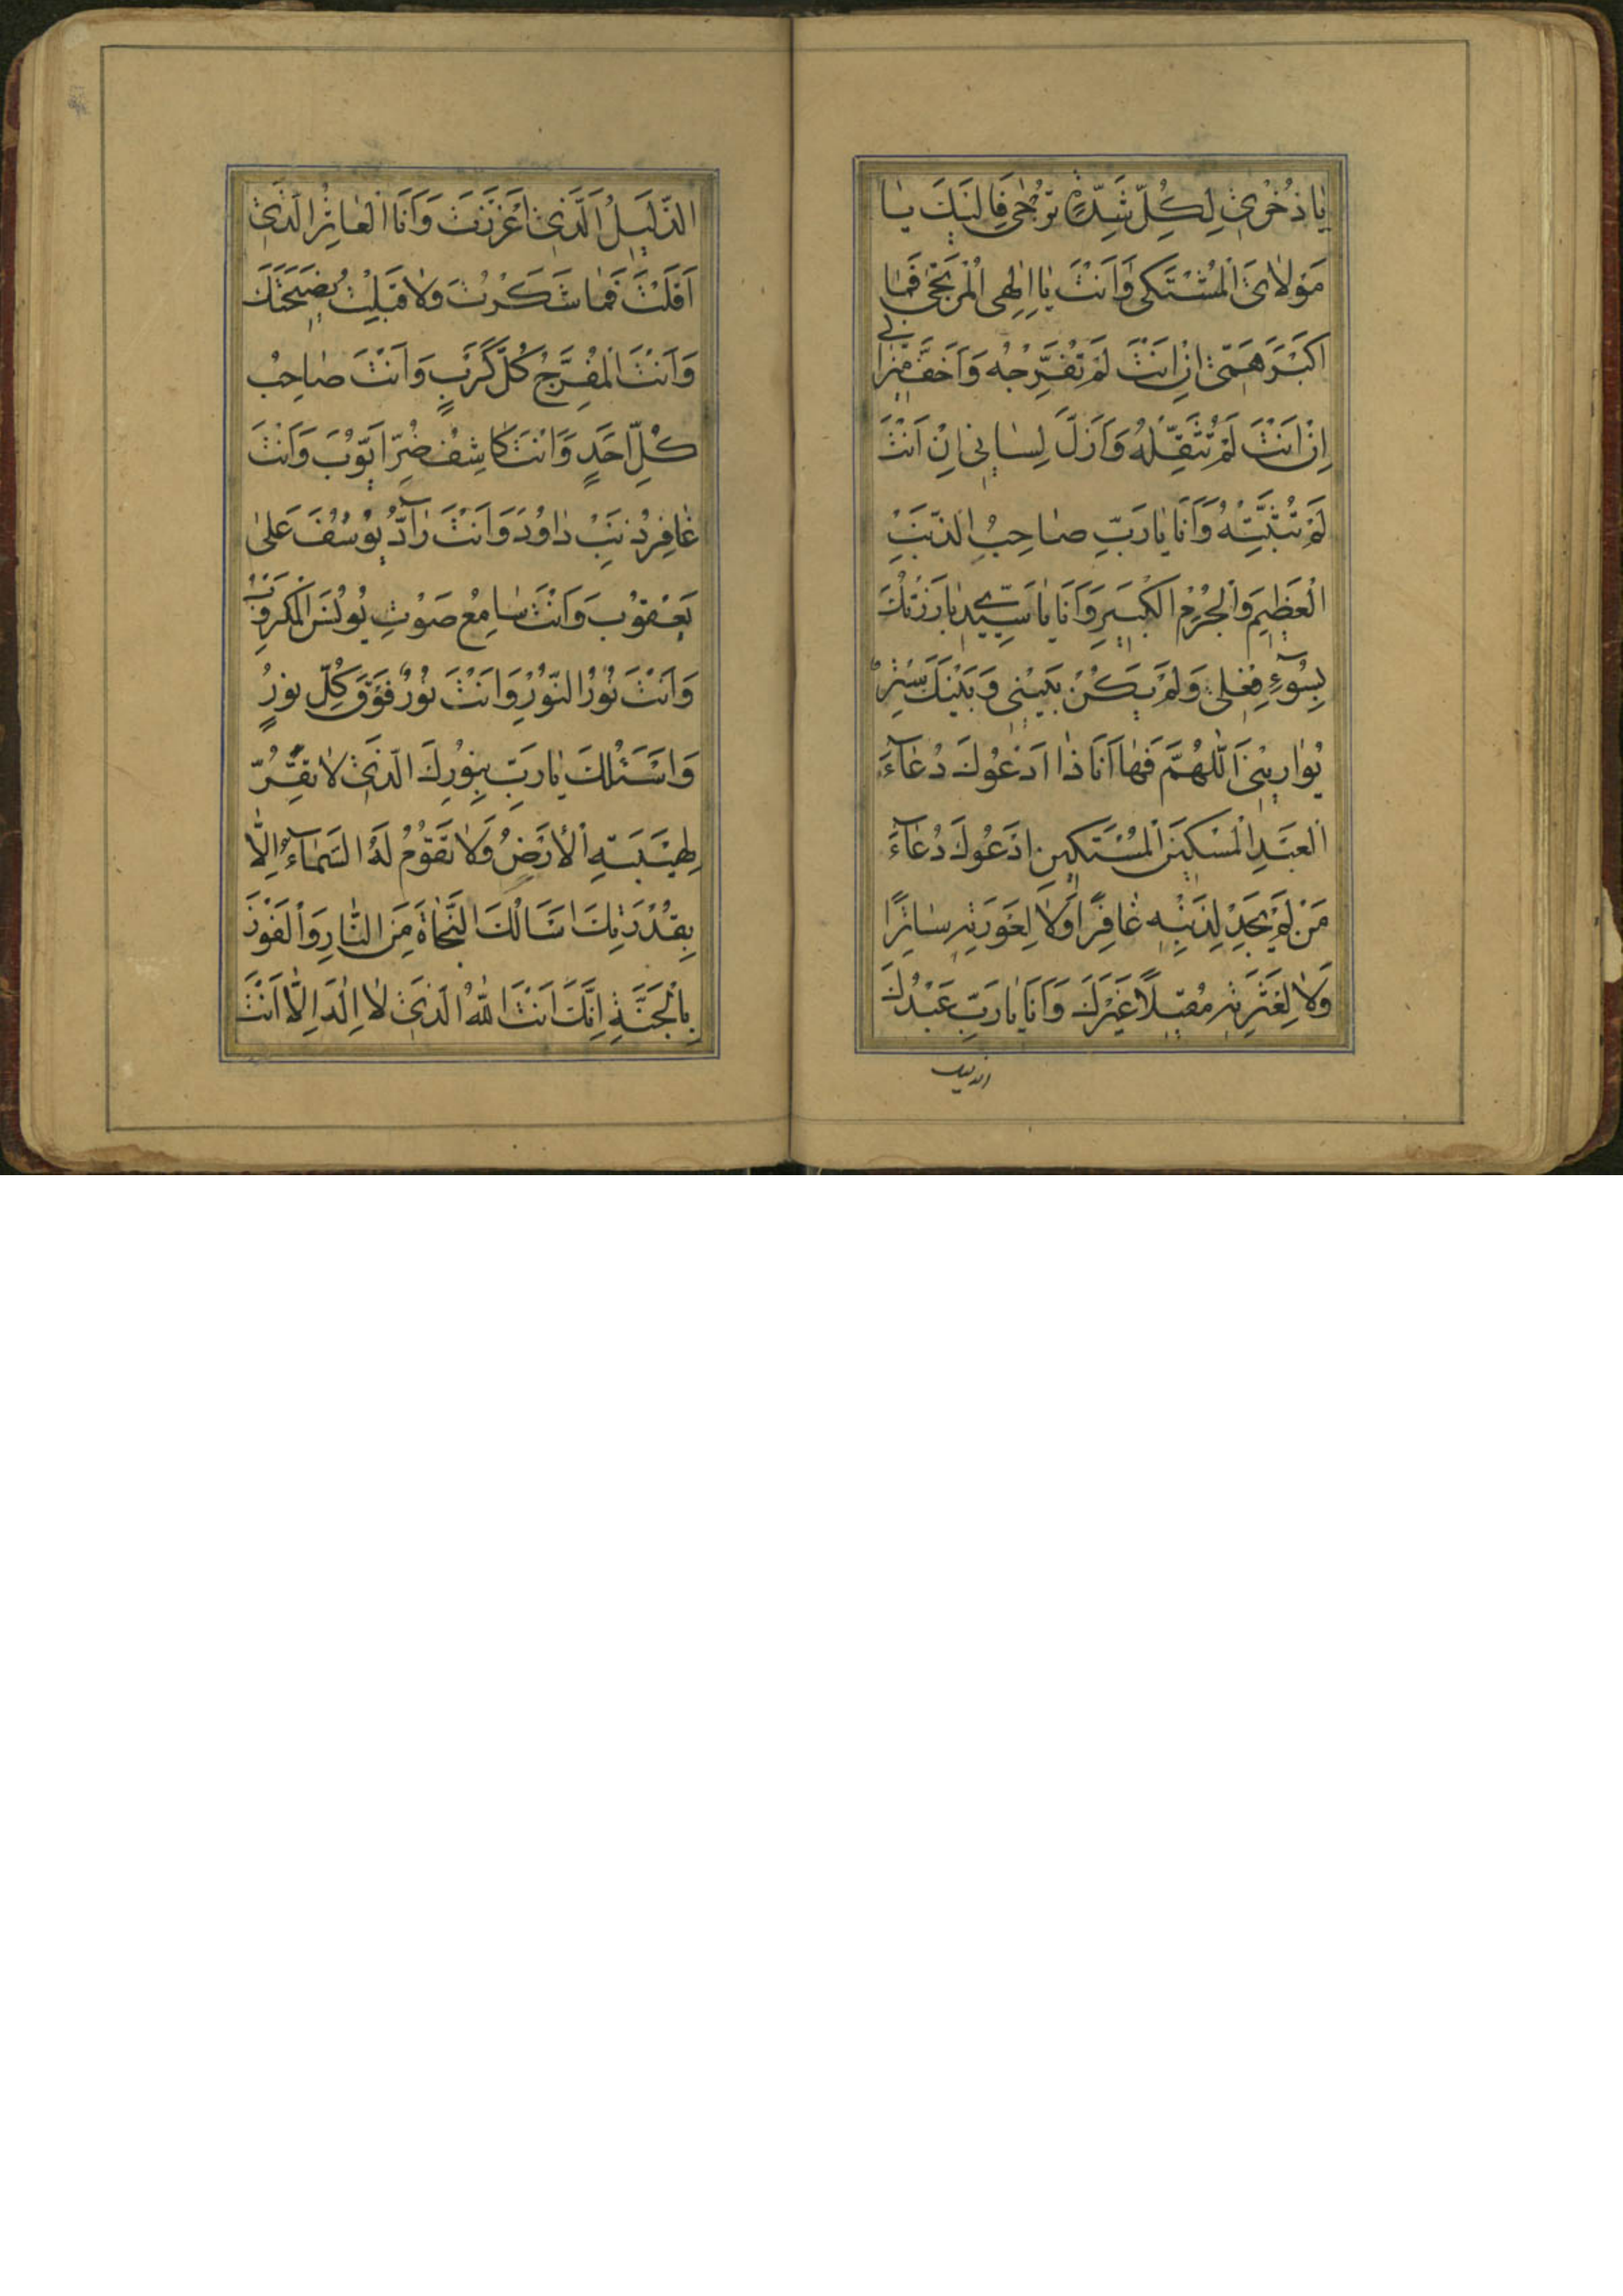 يٰا ذُخْرىٖ لِكُلِّ شِدَّةٍ تُرْجٰى فَاِلَيْكَ يٰا
مَوْلاٰىَ الْمُشْتَكىٰ وَاَنْتَ يٰا اِلٰهِى الْمُرْتَجٰى فَمٰا
اَكْبَرَ هَمّىٖ اِنْ اَنْتَ لَمْ تُفَرِّجْهُ وَاَخَفَّ مٖيزٰانىٖ
اِنْ اَنْتَ لَمْ تُثَقِّلْهُ وَاَزَلَّ لِسٰانىٖ اِنْ اَنْتَ
لَمْ تُثَبِّتْهُ وَاَنَا يٰا رَبِّ صٰاحِبُ الذَّنْبِ
الْعَظٖيمِ وَالْجُرْمِ الْكَبٖيرِ وَاَنَا يٰا سَيِّدىٖ بٰارَزْتُكَ
بِسُوۤءِ فِعْلى وَلَمْ يَكُنْ بَيْنىٖ وَبَيْنَكَ سَتْرٌ
يُوٰارٖينىٖ اَللّٰهُمَّ فَهٰا اَنَا ذٰا اَدْعُوكَ دُعٰاۤءَ
الْعَبْدِ الْمِسْكٖينِ الْمُسْتَكٖينِ اَدْعُوكَ دُعٰاۤءَ
مَنْ لَمْ يَجِدْ لِذَنْبِهٖ غٰافِرًا وَلاٰ لِعَوْرَتِهٖ سٰاتِرًا
وَلاٰ لِعَثْرَتِهٖ مُقٖيلاً غَيْرَكَ وَاَنَا يٰا رَبِّ عَبْدُكَ
الذليل
الذَّلٖيلُ الَّذىٖ اَعْزَزْتَ وَاَنَا الْعٰاثِرُ الَّذىٖ
اَقَلْتَ فَمٰا شَكَرْتُ وَلاٰ قَبِلْتُ نَصٖيحَتَكَ
وَاَنْتَ الْمُفَرِّجُ كُلَّ كَرْبٍ وَاَنْتَ صٰاحِبُ
كُلِّ اَحَدٍ وَاَنْتَ كٰاشِفُ ضُرِّ اَيُّوبَ وَاَنْتَ
غٰافِرُ ذَنْبِ دٰاوُدَ وَاَنْتَ رٰاۤدُّ يُوسُفَ عَلىٰ
يَعْقُوبَ وَاَنْتَ سٰامِعُ صَوْتِ يُونُسَ الْمَكْرُوبِ
وَاَنْتَ نُورُ النُّورِ وَاَنْتَ نُورٌ فَوْقَ كُلِّ نُورٍ
وَاَسْئَلُكَ يٰا رَبِّ بِنُورِكَ الَّذىٖ لاٰ تَقِرُّ
لِهَيْبَتِهِ الْاَرْضُ وَلاٰ تَقُومُ لَهُ السَّمٰاۤءُ اِلاّٰ
بِقُدْرَتِكَ اَسْاَلُكَ النَّجٰاةَ مِنَ النّٰارِ وَالْفَوْزَ
بِالْجَنَّةِ اِنَّكَ اَنْتَ اللّٰهُ الَّذىٖ لاٰ اِلٰهَ اِلاّٰ اَنْتَ